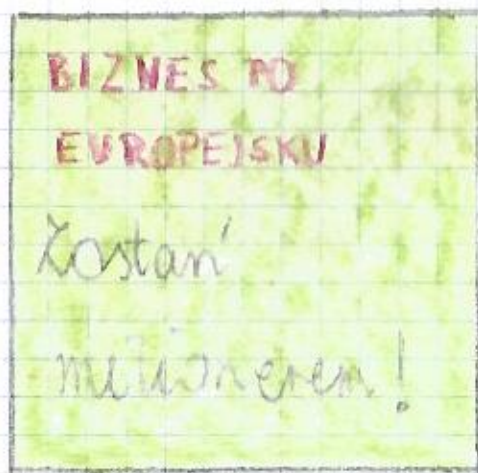 BIZNES PO
EUROPEJSKU
Zostań
milionerem!